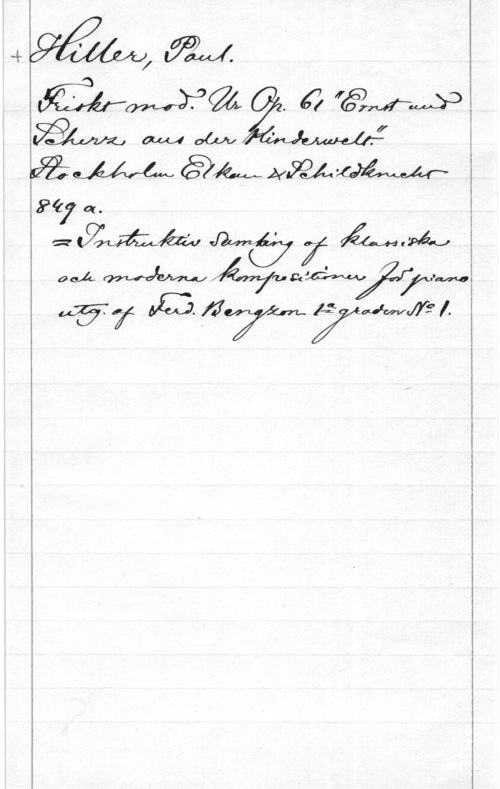 + Hiller, Paul.
Friskt mod. Ur Op. 61 "Ernst und
Scherz aus der Kinderwelt."
Stockholm Elkan & Schildknecht
849 a.
= Instruktiv Samling af klassiska
och moderna kompositioner för piano
utg. af Ferd. Bengzon. 1a graden No 1.